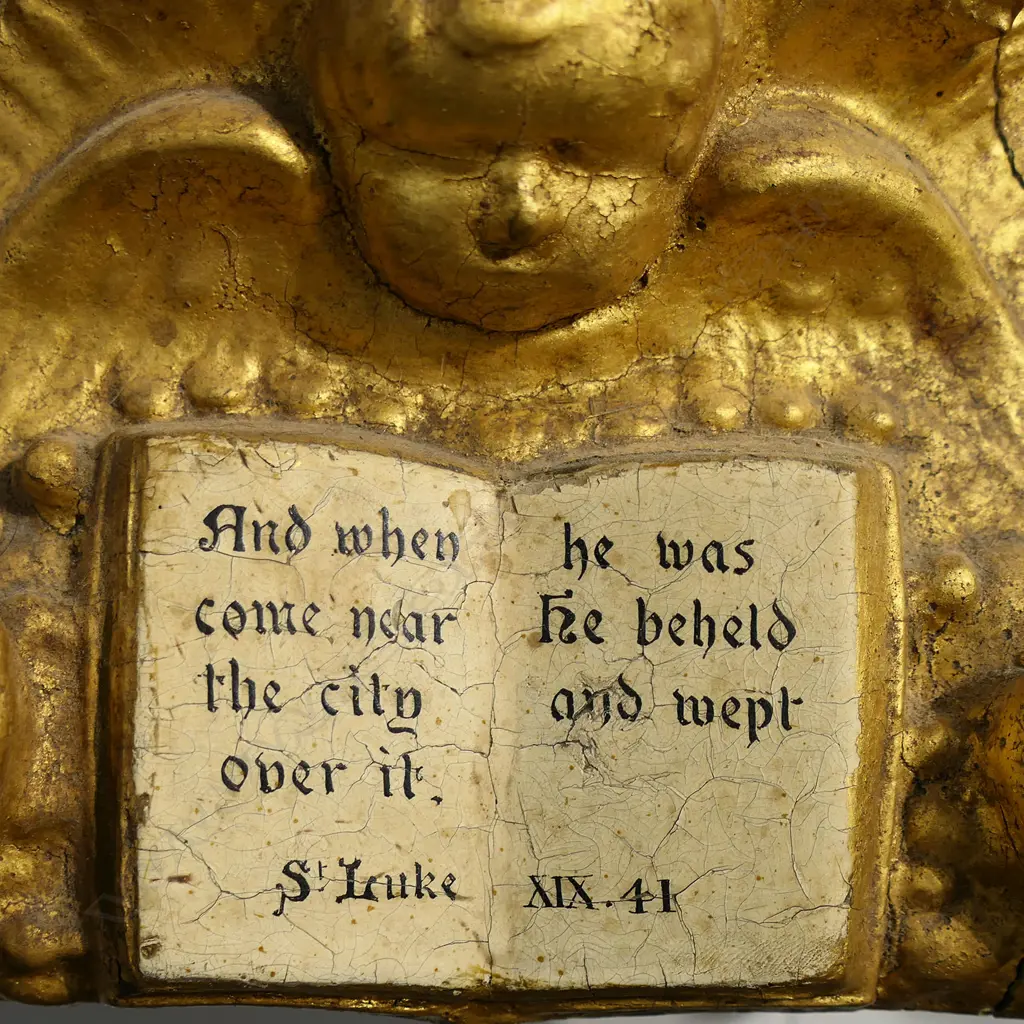 And when he was
come near He beheld
the city and wept
over it.
St Luke XIX. 41